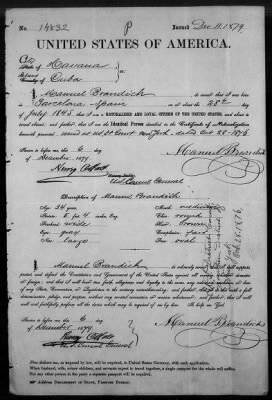 No. 14832
P
Issued Dec 11. 1879
UNITED STATES OF AMERICA.
City of Havana
Island of Cuba
I, Manuel Brandich do swear that I was born
in Barcelona Spain on or about the 28th
day of July 1845, that I am a NATURALIZED AND LOYAL CITIZEN OF THE UNITED STATES, and about to
travel abroad; and further that I am the Identical Person described in the Certificate of Naturalization
herewith presented
Court New York dated Oct 28 1876
Sworn to before me this 6
day of December 1879
Manuel Brandich
Consul General
Description of Manuel Brandich
Age: 34 years
Mouth: medium
Stature: 5 ft 4 inches Eng.
Chin: round
Forehead: wide
Hair: brown
Eyes: grey
Complexion: fair
Nose: large
Face: oval
I, Manuel Brandich do solemnly swear that I will support,
protect, and defend the Constitution and Government of the United States against all enemies, whether domestic or
foreign; and that I will bear true faith, allegiance, and loyalty to the same, any ordinance, resolution, or law
of any State, Convention, or Legislature to the contrary notwithstanding; and further, that I do this with a full
determination, pledge, and purpose, without any mental reservation or evasion whatsoever; and further, that I will
well and faithfully perform all the duties which may be required of me by law. So help me God.
Sworn to before me this 6
day of December 1879
Manuel Brandich
Consul General